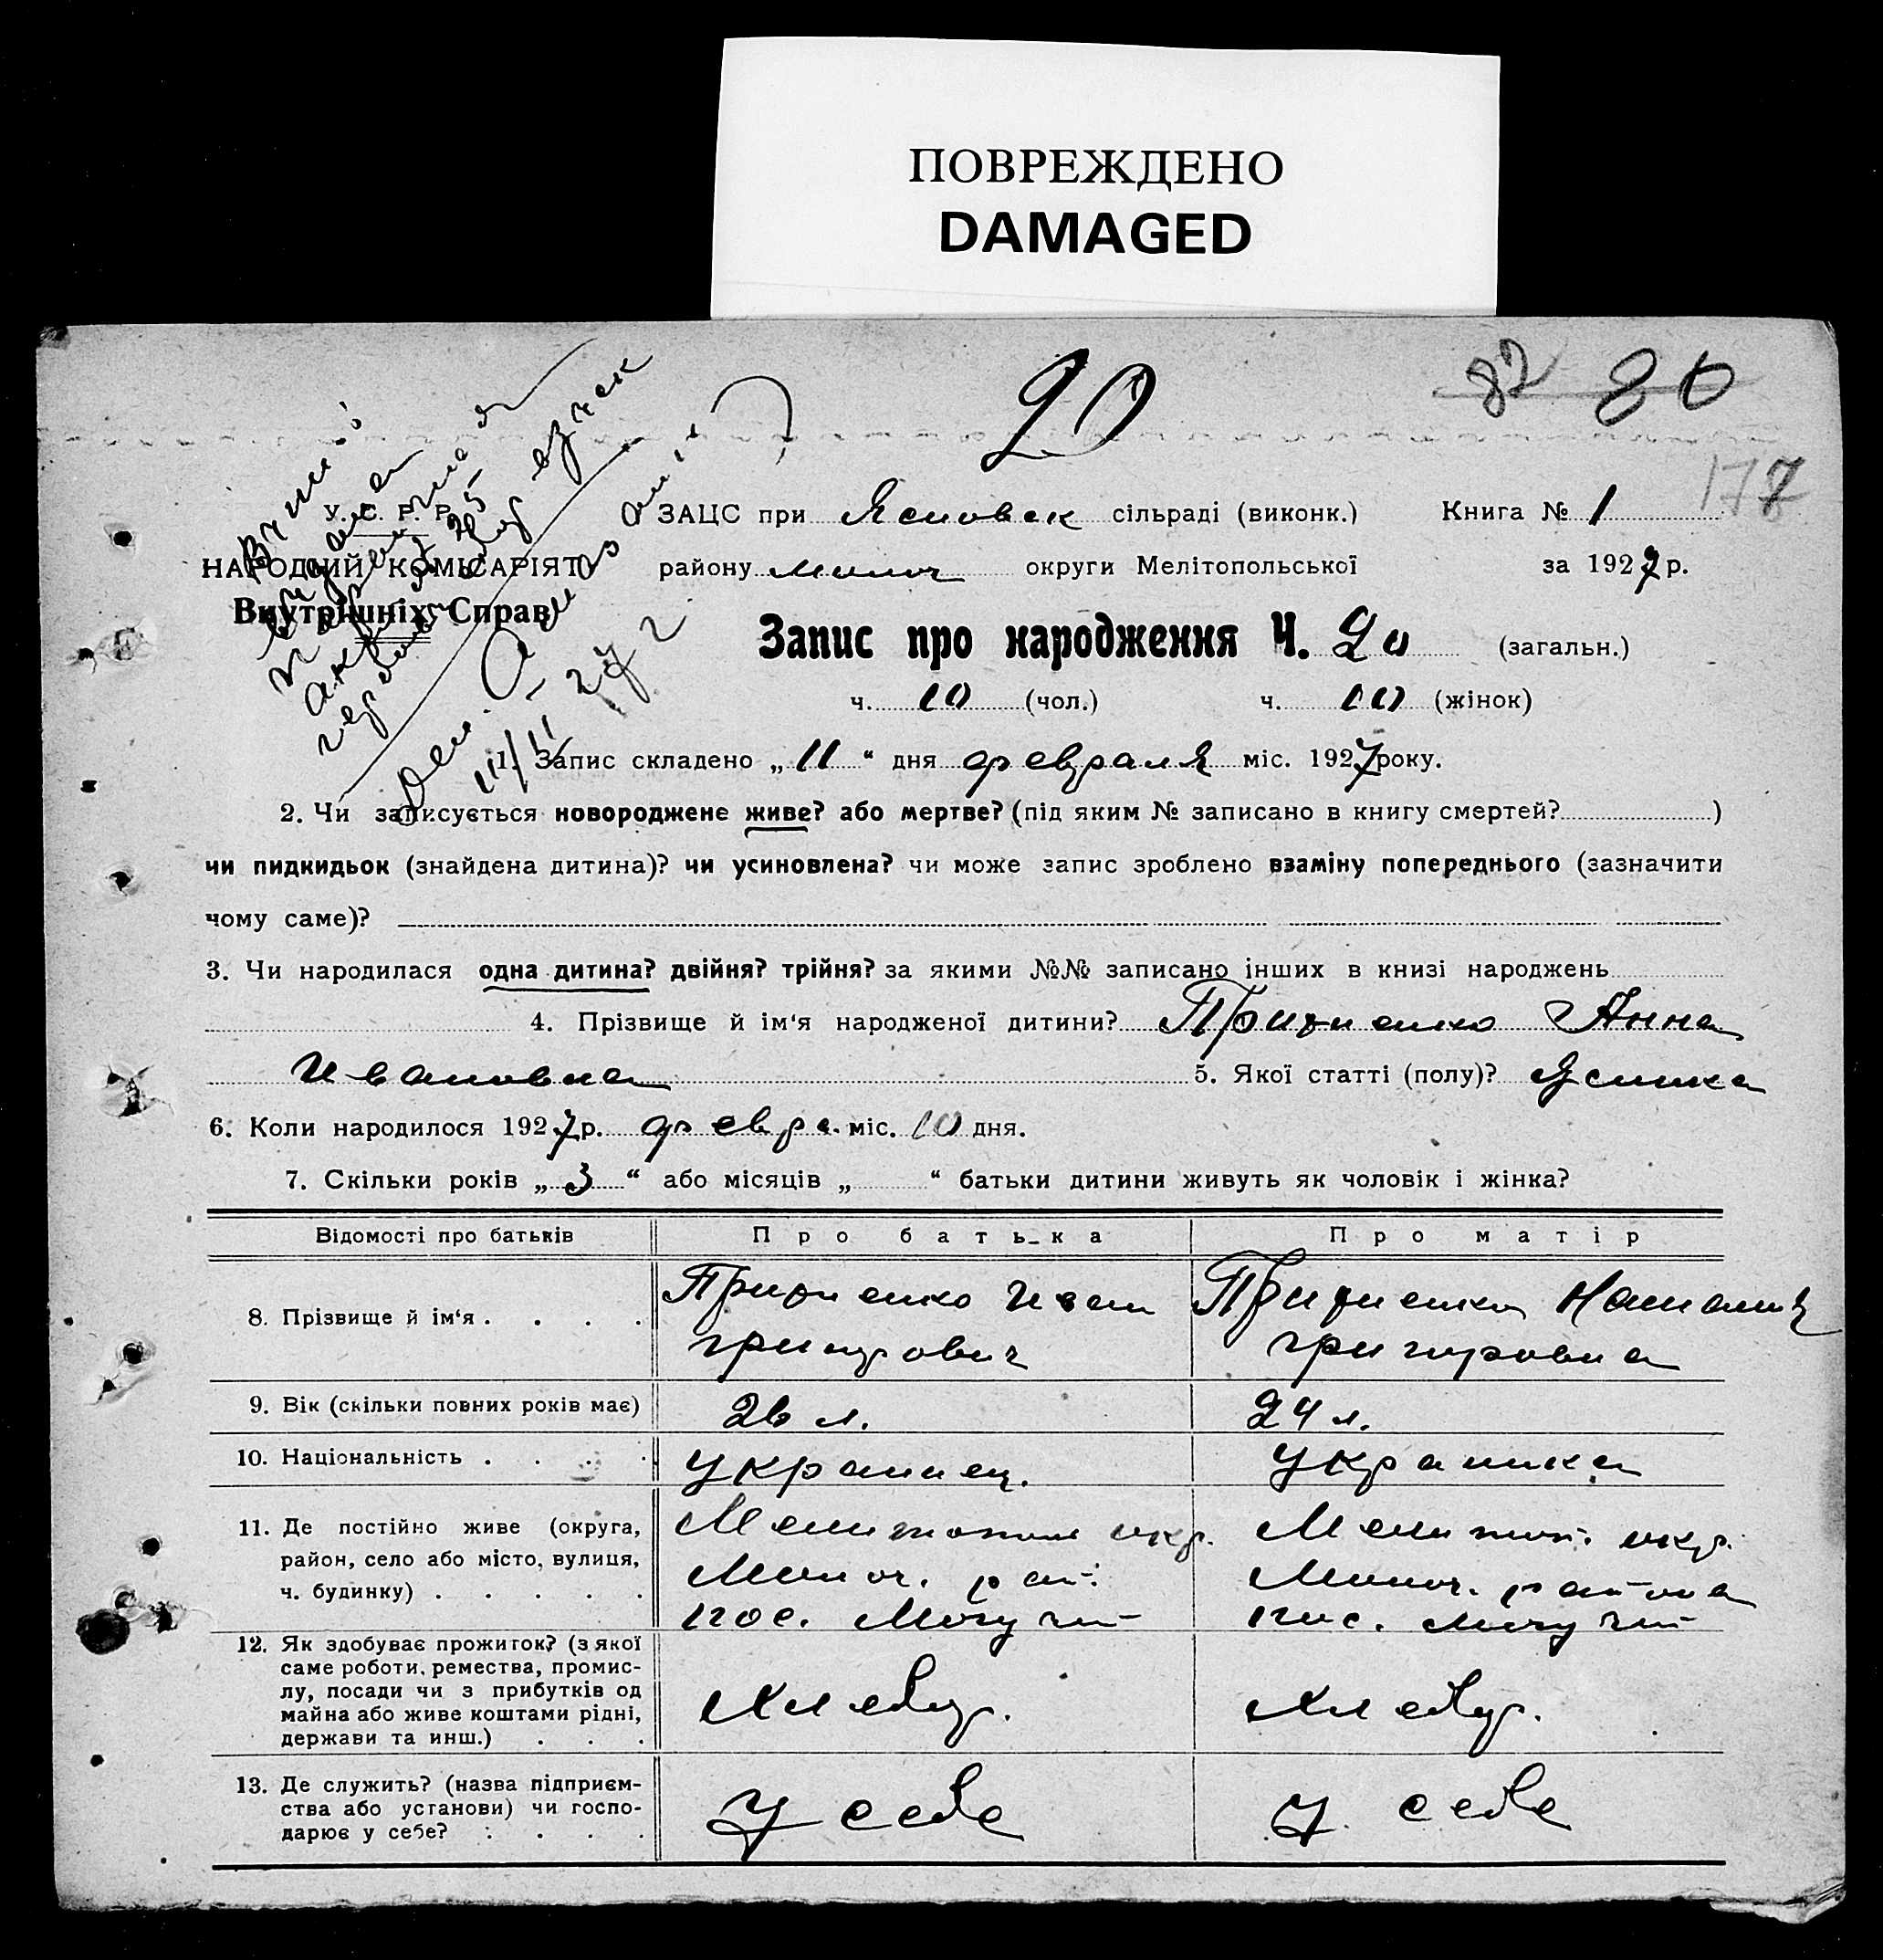 ПОВРЕЖДЕНО
DAMAGED
20
82 80
177
У. С. Р. Р.
НАРОДНИЙ КОМІСАРІЯТ
Внутрішніх Справ
ЗАЦС при Ясновск сільраді (виконк.) Книга № 1
району округи Мелітопольської за 1927 р.
Запис про народження Ч. 20 (загальн.)
ч. 10 (чол.) ч. 10 (жінок)
1. Запис складено „ 11 “ дня февраля міс. 1927 року.
2. Чи записується новороджене живе? або мертве? (під яким № записано в книгу смертей? )
чи пидкидьок (знайдена дитина)? чи усиновлена? чи може запис зроблено взаміну попереднього (зазначити
чому саме)?
3. Чи народилася одна дитина? двійня? трійня? за якими №№ записано інших в книзі народжень
4. Прізвище й ім'я народженої дитини? Анна
Ивановна 5. Якої статті (полу)?
6. Коли народилося 1927 р. февра. міс. 10 дня.
7. Скільки років „ 3 “ або місяців „ “ батьки дитини живуть як чоловік і жінка?
Відомості про батьків Про батька Про матір
8. Прізвище й ім'я . . . . Иван Наталия
Григорович Григоровна
9. Вік (скільки повних років має) 26 л. 24 л.
10. Національність . . . . украинец. украинка
11. Де постійно живе (округа, Мелитополь окр. Мелитоп. окр.
район, село або місто, вулиця, рай. района
ч. будинку) . . . . . пос. Могучий пос. Могучий
12. Як здобуває прожиток? (з якої
саме роботи, ремества, промис-
лу, посади чи з прибутків од
майна або живе коштами рідні, хлебор. хлебор.
держави та инш.) . . .
13. Де служить? (назва підприєм-
ства або установи) чи госпо- у себе у себе
дарює у себе? . . . .